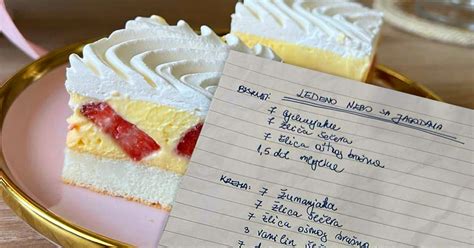 LEDENO NEBO SA JAGODAMA
BISKVIT:
7 bjelanjaka
7 žlica šećera
7 žlica oštrog brašna
1,5 dl mlijeka
KREMA:
7 žumanjaka
7 žlica šećera
7 žlica oštrog brašna
3 vanilin
7